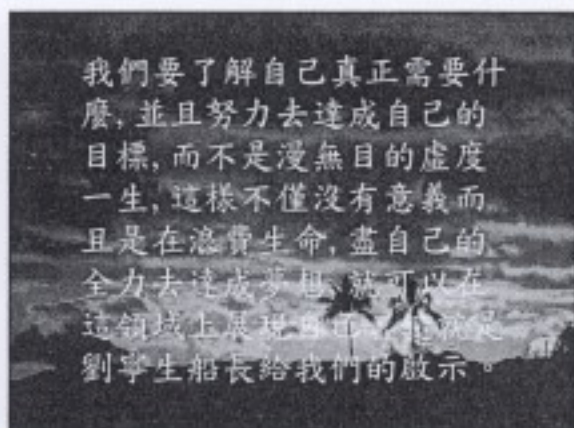 我們要了解自己真正需要什
麼,並且努力去達成自己的
目標,而不是漫無目的虛度
一生,這樣不僅沒有意義而
且是在浪費生命,盡自己的
全力去達成夢想,就可以在
這領域上展現自己,這就是
劉寧生船長給我們的啟示。